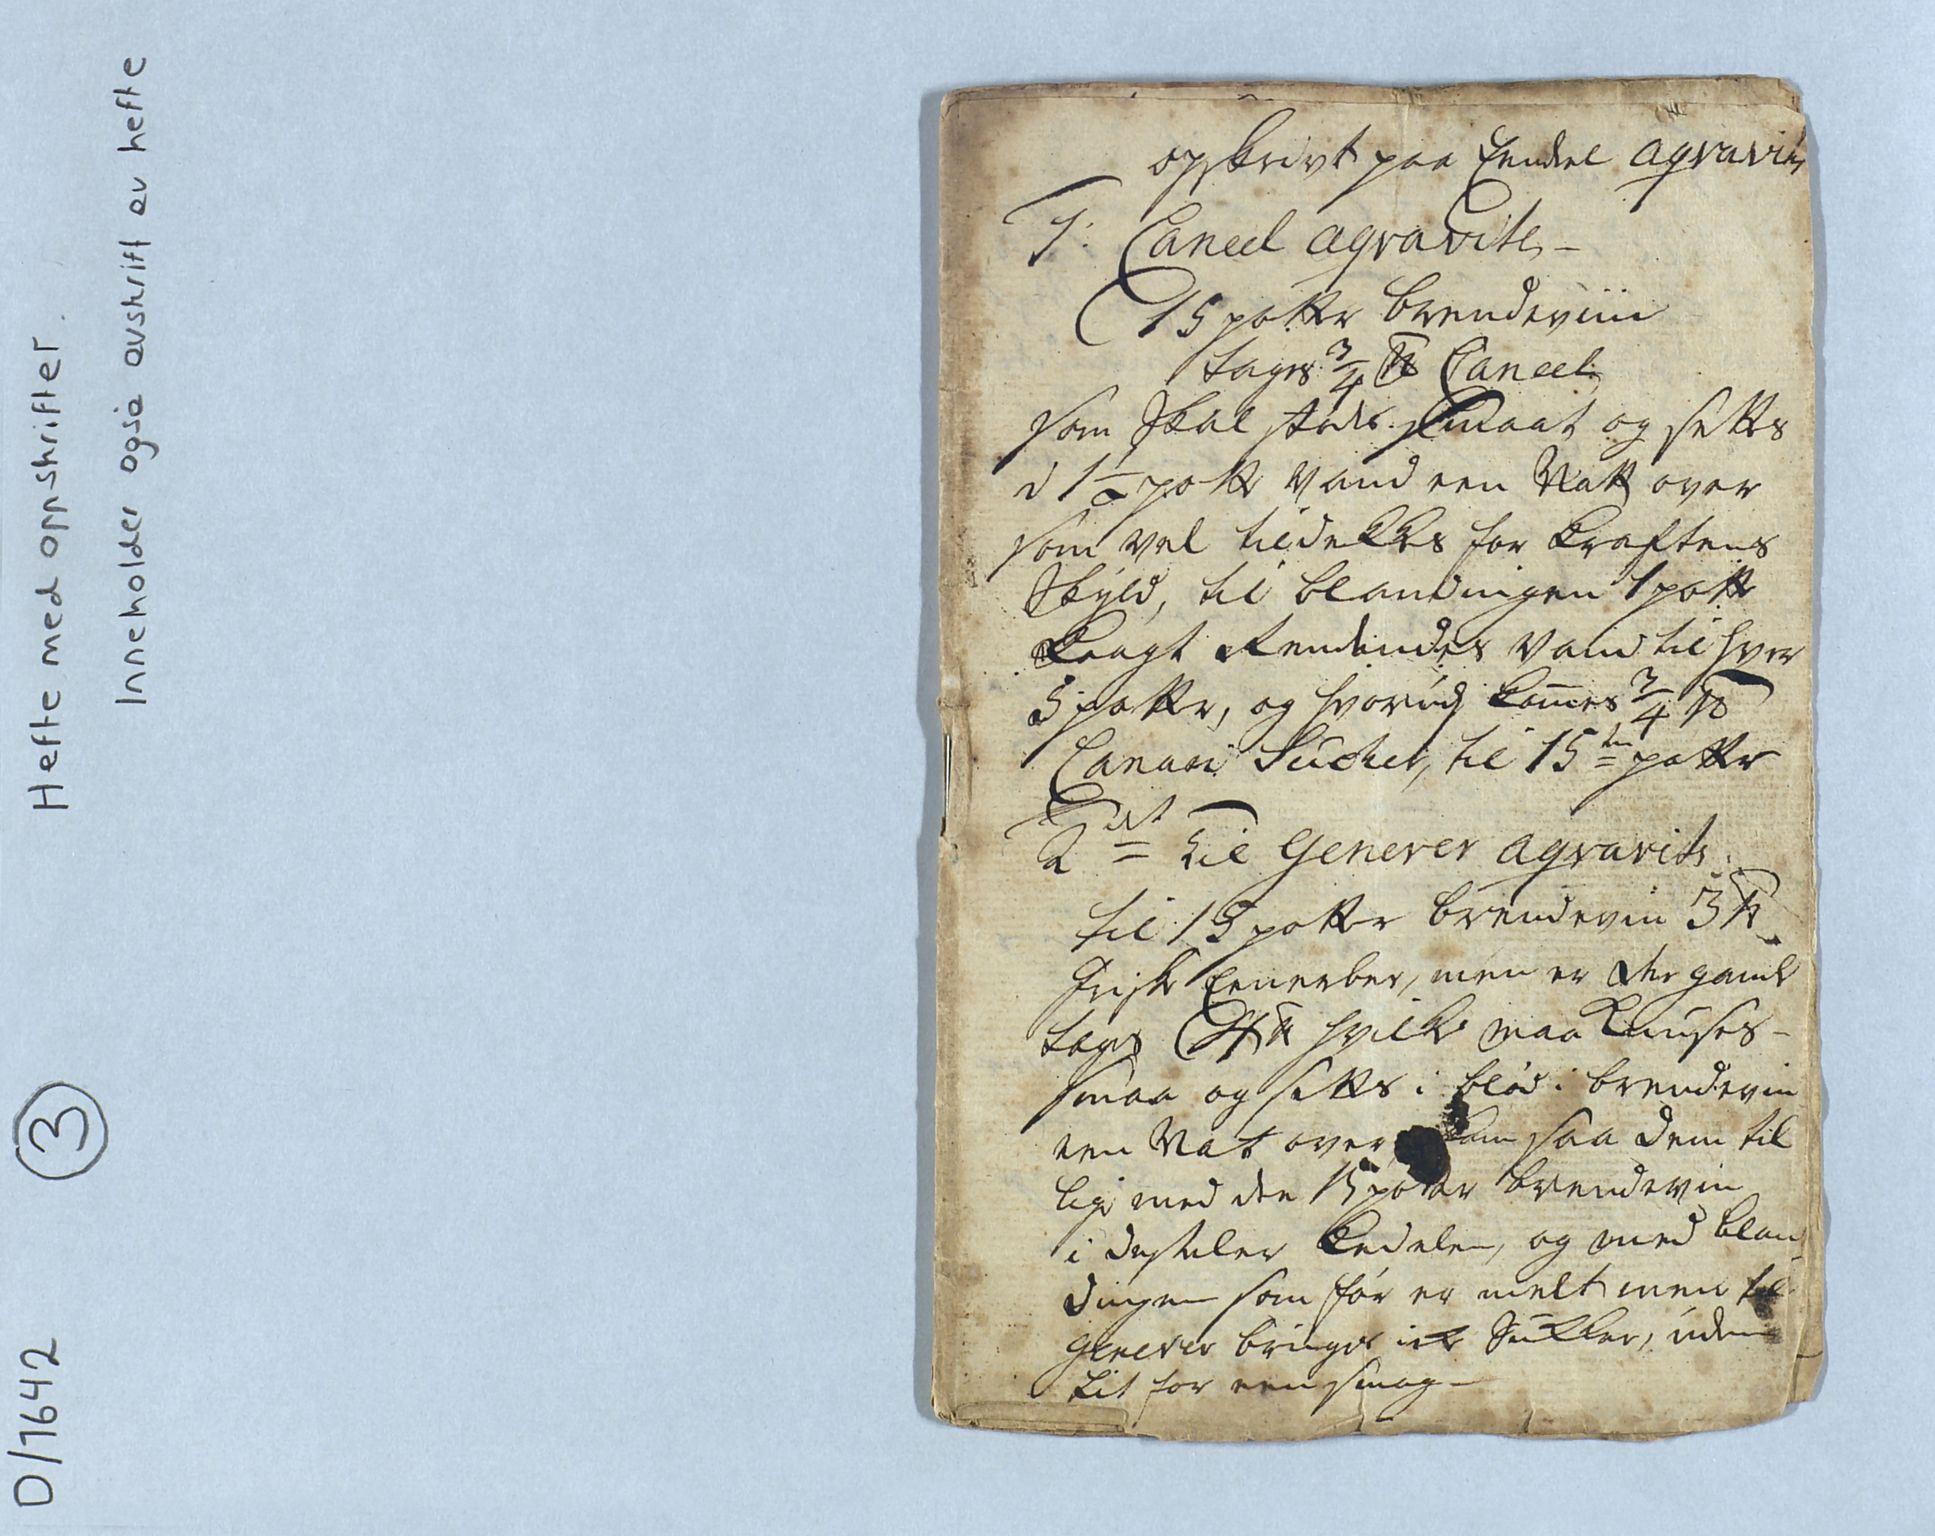 Hefte med oppskrifter.
Inneholder også avskrift av hefte
D/1642
3
opskrivt paa Eendeel aqvavit
1: Caneel aqvavite –
15 potter brendeviin
tages 3/4 ℔ Caneel
som skal stødes smaat og settes
i 1 1/2 potte vand een Natt over
som vel tildekkes for kraftens
skyld, til blandingen 1 potte
kaagt Rendendes vand til hver
5 potter, og hvorudj kom̅es 3/4 ℔
Canari Sucker, til 15ten potter
2det Til Genever aqvavits.
til 15 potter brendevin 3 ℔
friske Eenerber, men er de gamle
tages 4 ℔ hvilke maa knuses –
smaa og settes i blød i brendevin
een Nat over kom saa dem til
lige med de 15 potter brendevin
i destiler kedelen, og med blan
dingen som før er melt men til
Genever bringes ике Sukker, uden
lit for een smag –